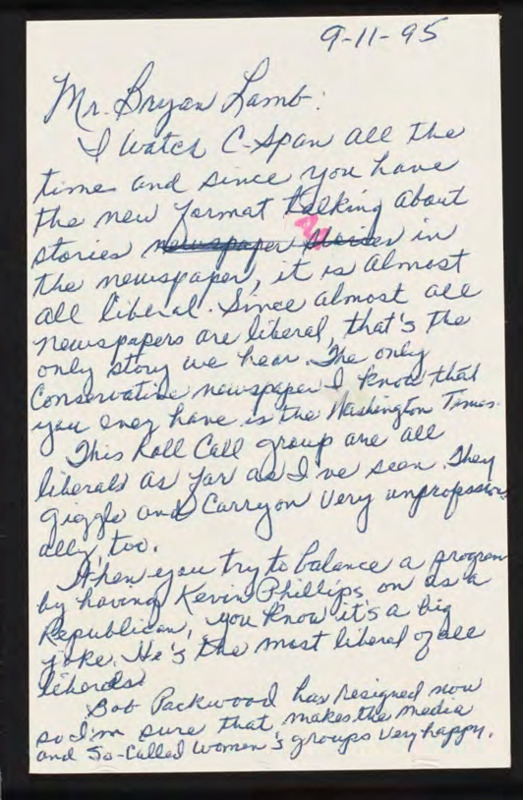 9-11-95
Mr. Bryan Lamb:
I watch C-Span all the
time and since you have
the new format talking about
stories newspaper stories in
the newspaper, it is almost
all liberal. Since almost all
newspapers are liberal, that's the
only story we hear. The only
Conservative newspaper I know that
you ever have is the Washington Times.
This Roll Call group are all
liberals as far as I've seen. They
giggle and carry on very unprofession
ally, too.
When you try to balance a program
by having Kevin Phillips on as a
Republican, you know it's a big
joke. He's the most liberal of all
liberals!
Bob Packwood has resigned now
so I'm sure that makes the media
and so-called women's groups very happy.